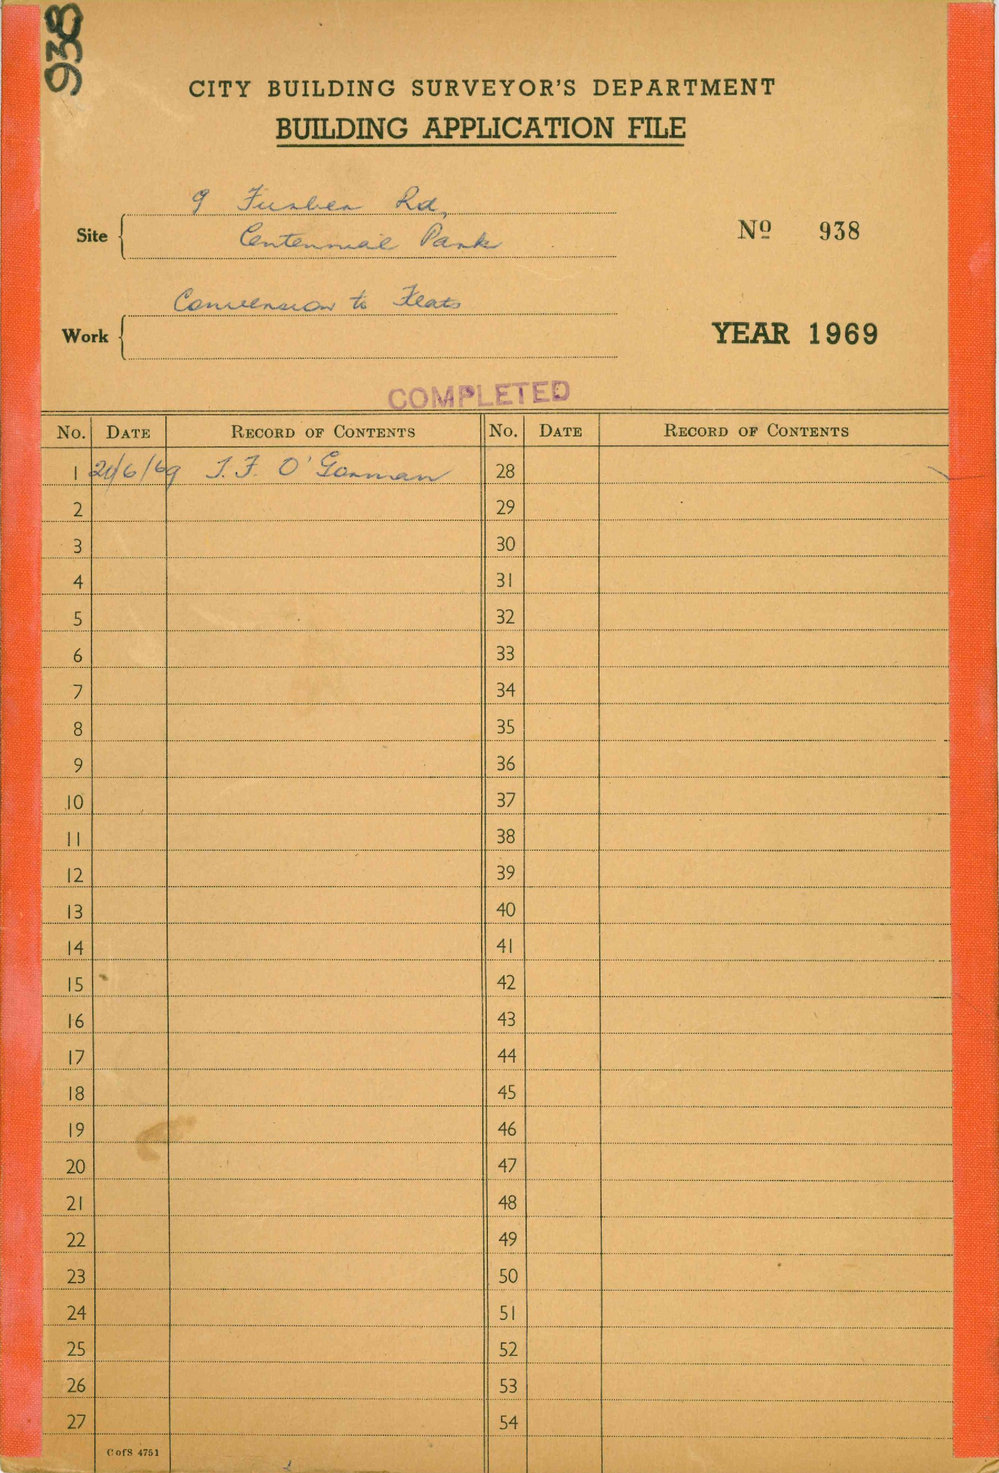 938
CITY BUILDING SURVEYOR'S DEPARTMENT
BUILDING APPLICATION FILE
9 Furber Rd,
Site
Centennial Park
Nº 938
Conversion to Flats
Work
YEAR 1969
COMPLETED
No. DATE RECORD OF CONTENTS No. DATE RECORD OF CONTENTS
1 /6/69 J. F. O'Gorman 28
2 29
3 30
4 31
5 32
6 33
7 34
8 35
9 36
10 37
11 38
12 39
13 40
14 41
15 42
16 43
17 44
18 45
19 46
20 47
21 48
22 49
23 50
24 51
25 52
26 53
27 54
C of S 4751